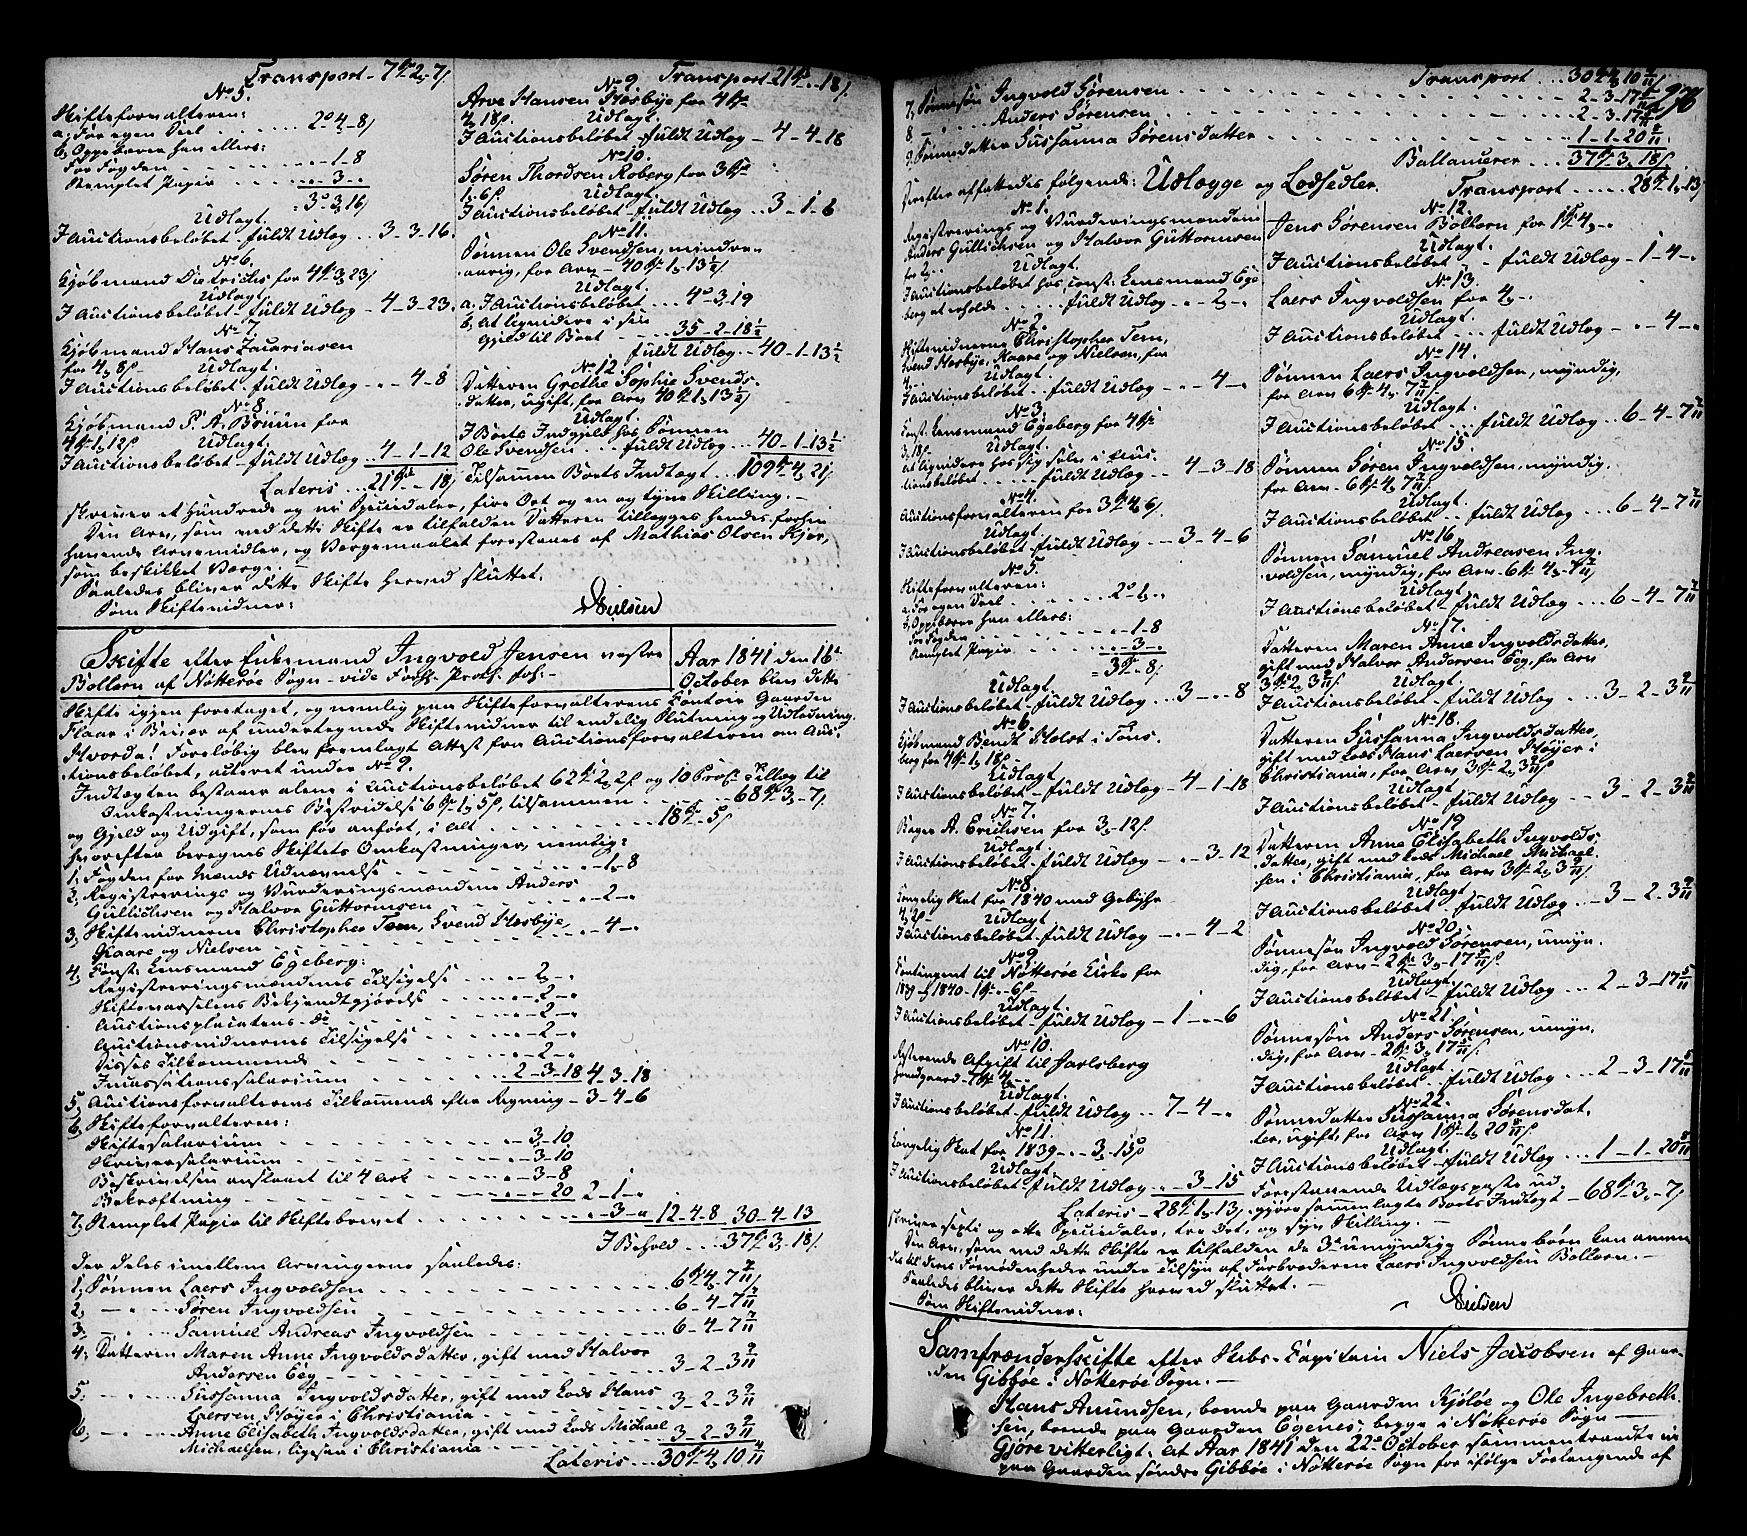 Transport - 7 2 7
No 5.
Skifteforvalteren:
a, For egen Deel - 2 4 8
b, Oppebærer han ellers:
For Fogden - 1 - 8
Stemplet Papir - 3 -
3 3 16
Udlagt.
I Auctionsbeløbet - fuldt Udlæg - 3 - 3 - 16.
No 6.
Kjøbmand Dietrichs for 4 3 23
Udlagt.
I Auctionsbeløbet - fuldt Udlæg - 4 - 3 - 23.
No 7.
Kjøbmand Hans Zacariasen
for 4 8
Udlagt.
I Auctionsbeløbet - fuldt Udlæg - 4 - 8
No 8.
Kjøbmand P. A. Bruun for
4 1 12
Udlagt.
I Auctionsbeløbet - fuldt Udlæg - 4 - 1 - 12
Lateris - 21 - 18
Transport 21 - 18
No 9.
Arve Hansen Hæsbye for 4
4 18
Udlagt.
I Auctionsbeløbet fuldt Udlæg - 4 - 4 - 18
No 10.
Søren Thordsen Roberg for 3
1 6
Udlagt.
I Auctionsbeløbet - fuldt Udlæg - 3 - 1 - 6
No 11.
Sønnen Ole Svendsen, mindre-
aarig, for Arv - 40 1 13½
Udlagt.
a, I Auctionsbeløbet - 4 3 19
b, At liqvidere i sin
Gjæld til Boet - 35 - 2 - 18½
fuldt Udlæg - 40 - 1 - 13½
No 12.
Datteren Grethe Sophie Svends-
datter, ugift, for Arv 40 1 13½
Udlagt.
I Boets Indgjæld hos Sønnen
Ole Svendsen - fuldt Udlæg - 40 - 1 - 13½
Tilsammen Boets Indtægt - 109 4 21
skriver et Hundrede og ni Speciedaler, fire Ort og en og tyve Skilling. -
Den Arv, som ved dette Skifte er tilfalden Datteren tillægges hendes forhen
havende Arvemidler, og Værgemaalet forestaaes af Mathias Olsen Kjær,
som beskikket Værge. -
Saaledes bliver dette Skifte herved sluttet.
Som Skiftevidner:
Nielsen
Skifte efter Enkemand Ingvold Jensen vestre
Bollern af Nøtterøe Sogn - vide Forh. Prot. fol: -
Aar 1841 den 16
October blev dette
Skifte igjen foretaget, og nemlig paa Skifteforvalterens Contoir Gaarden
i Bivær af undertegnede Skiftevidner til endelig Slutning og Udlodning.
Hvorda! Foreløbig blev fremlagt Attest fra Auctionsforvalteren om Auc-
tionsbeløbet, acteret under No 9.
Indtægten bestaaer alene i Auctionsbeløbet 62 2 2 og 10 Proc. Tillæg til
Omkostningernes Bestridelse 6 1 5, tilsammen - 68 3 7
og Gjæld og Udgift, som før anført, i alt - 18 - 5
hvorefter beregnes Skiftets Omkostninger, nemlig:
1, Fogden for Mænds Udnævnelse - 1 - 8
2, Registrerings og Vurderingsmændene Anders
Gullichsen og Halvor Guttormsen - 2 -
3, Skiftevidnerne Christopher Tem, Svend Hæsbye,
Kaare og Nielsen - 4 -
4, Const. Lensmand Egeberg:
Registreringsmændenes Tilsigelse - 2 -
Skiftevarselens Bekjendtgjørelse - 2 -
Auctionsplacatens do - 2 -
Auctionsvidnernes Tilsigelse - 2 -
Disses Tilkommende - 2 -
Incassationssalarium - 2 - 3 - 18 4 - 3 - 18
5, Auctionsforvalterens Tilkommende efter Regning - 3 - 4 - 6
6, Skifteforvalteren:
Skiftesalarium - 3 - 10
Skriversalarium - 3 - 10
Beskrivelsen anslaaet til 4 Ark - 3 - 8
Bekræftning - 20 2 - 1 -
7, Stemplet Papir til Skiftebrevet - 3 - 12 - 4 - 8 30 - 4 - 13
I Behold - 37 3 18
Der deles imellem Arvingerne saaledes:
1, Sønnen Laers Ingvoldsen - 6 4 7 7/11
2, - Søren Ingvoldsen - 6 - 4 - 7 7/11
3, - Samuel Andreas Ingvoldsen - 6 - 4 - 7 7/11
4, Datteren Maren Anne Ingvoldsdatter, gift med Halvor
Andersen Eeg - 3 - 2 - 3 9/11
5, - Sussanna Ingvoldsdatter, gift med Lods Hans
Laersen Høyer i Christiania - 3 - 2 - 3 9/11
6, - Anne Elisabeth Ingvoldsdatter, gift med Lods Michael
Michaelsen, ligesaa i Christiania - 3 - 2 - 3 9/11
Lateris - 30 4 10
Transport - 30 4 10
7, Sønnesøn Ingvold Sørensen - 2 - 3 - 17
8 - Anders Sørensen - 2 - 3 - 17
9, Sønnedatter Sussanna Sørensdatter - 1 - 1 - 20
Ballancerer - 37 3 18
Derefter affattedes følgende: Udlægge og Lodsedler.
No 1.
Registrerings og Vurderingsmændene
Anders Gullichsen og Halvor Guttormsen
for 2
Udlagt.
I Auctionsbeløbet hos const. Lensmand Ege-
berg at erholde - fuldt Udlæg - 2 -
No 2.
Skiftevidnerne Christopher Tem,
Svend Hæsbye, Kaare og Nielsen, for
4
Udlagt.
I Auctionsbeløbet - fuldt Udlæg - 4 -
No 3.
Const. Lensmand Egeberg for 4
3 18
Udlagt.
At liqvidere hos sig selv i Auc-
tionsbeløbet - fuldt Udlæg - 4 - 3 - 18
No 4.
Auctionsforvalteren for 3 4 6
Udlagt.
I Auctionsbeløbet - fuldt Udlæg - 3 - 4 - 6
No 5.
Skifteforvalteren:
a, For egen Deel - 2 1 -
b, Oppebærer han ellers:
For Fogden - 1 - 8
Stemplet Papir - 3 -
3 - 8
Udlagt.
I Auctionsbeløbet - fuldt Udlæg - 3 - - 8
No 6.
Kjøbmand Bendt Holst i Tøns-
berg for 4 1 18
Udlagt.
I Auctionsbeløbet - fuldt Udlæg - 4 - 1 - 18
No 7.
Bager A. Erichsen for 3 - 12
Udlagt.
I Auctionsbeløbet - fuldt Udlæg - 3 - 12
No 8.
Kongelig Skat for 1840 med Gebyhr
4 2
Udlagt.
I Auctionsbeløbet - fuldt Udlæg - 4 - 2
No 9.
Contingent til Nøtterøe Kirke for
1839 og 1840 - 1 - 6
Udlagt.
I Auctionsbeløbet - fuldt Udlæg - 1 - - 6
No 10.
Resterende Afgift til Jarlsberg
Hovedgaard - 7 4 -
Udlagt.
I Auctionsbeløbet - fuldt Udlæg - 7 - 4 -
No 11.
Kongelig Skat for 1839 - 3 - 15
Udlagt.
I Auctionsbeløbet - fuldt Udlæg - 3 - 15
Lateris - 28 1 13
Transport - 28 1 13
No 12.
Jens Sørensen Bollern for 1 4 -
Udlagt.
I Auctionsbeløbet - fuldt Udlæg - 1 - 4 -
No 13.
Laers Ingvoldsen for 4 -
Udlagt.
I Auctionsbeløbet - fuldt Udlæg - 4 -
No 14.
Sønnen Laers Ingvoldsen, myndig,
for Arv 6 4 7 7/11
Udlagt.
I Auctionsbeløbet - fuldt Udlæg - 6 - 4 - 7 7/11
No 15.
Sønnen Søren Ingvoldsen, myndig,
for Arv - 6 4 7 7/11
Udlagt.
I Auctionsbeløbet - fuldt Udlæg - 6 - 4 - 7 7/11
No 16.
Sønnen Samuel Andreasen Ing-
voldsen, myndig, for Arv - 6 4 7 7/11
Udlagt.
I Auctionsbeløbet - fuldt Udlæg - 6 - 4 - 7 7/11
No 17.
Datteren Maren Anne Ingvoldsdatter,
gift med Halvor Andersen Eeg, for Arv
3 2 3 9/11
Udlagt.
I Auctionsbeløbet - fuldt Udlæg - 3 - 2 - 3 9/11
No 18.
Datteren Sussanna Ingvoldsdatter,
gift med Lods Hans Laersen Høyer i
Christiania, for Arv 3 2 3 9/11
Udlagt
I Auctionsbeløbet - fuldt Udlæg - 3 - 2 - 3 9/11
No 19
Datteren Anne Elisabeth Ingvolds-
datter, gift med Lods Michael Michael-
sen i Christiania, for Arv 3 2 3 9/11
Udlagt
I Auctionsbeløbet - fuldt Udlæg - 3 - 2 - 3 9/11
No 20.
Sønnesøn Ingvold Sørensen, umyn-
dig, for Arv - 2 3 - 17
Udlagt.
I Auctionsbeløbet - fuldt Udlæg - 2 - 3 - 17
No 21.
Sønnesøn Anders Sørensen, umyn-
dig, for Arv - 2 3 17
Udlagt.
I Auctionsbeløbet - fuldt Udlæg - 2 - 3 - 17
No 22.
Sønnedatter Sussanna Sørensdat-
ter, ugift, for Arv 1 1 20
Udlagt.
I Auctionsbeløbet - fuldt Udlæg - 1 - 1 - 20
Forestaaende Udlægsposter ud-
gjøre sammenlagte Boets Indtægt - 68 3 - 7
skriver sexti og otte Speciedaler, tre Ort, og syv Skilling. -
Den Arv, som ved dette Skifte er tilfalden de 3 umyndige Sønnebørn kan anven-
des til deres Fornødenheder under Tilsyn af Farbroderen Laers Ingvoldsen Bollern. -
Saaledes bliver dette Skifte herved sluttet.
Som Skiftevidner:
Nielsen
Samfrændeskifte efter Skibs-Capitain Niels Jacobsen af Gaar-
den Gibbøe i Nøtterøe Sogn. -
Hans Amundsen, boende paa Gaarden Kjøløe og Ole Ingebreth-
sen, boende paa Gaarden Egenes, begge i Nøtterøe Sogn -
Gjøre vitterligt, At Aar 1841 den 22 October sammentraadte vi
paa Gaarden søndre Gibbøe i Nøtterøe Sogn for ifølge Forlangende af